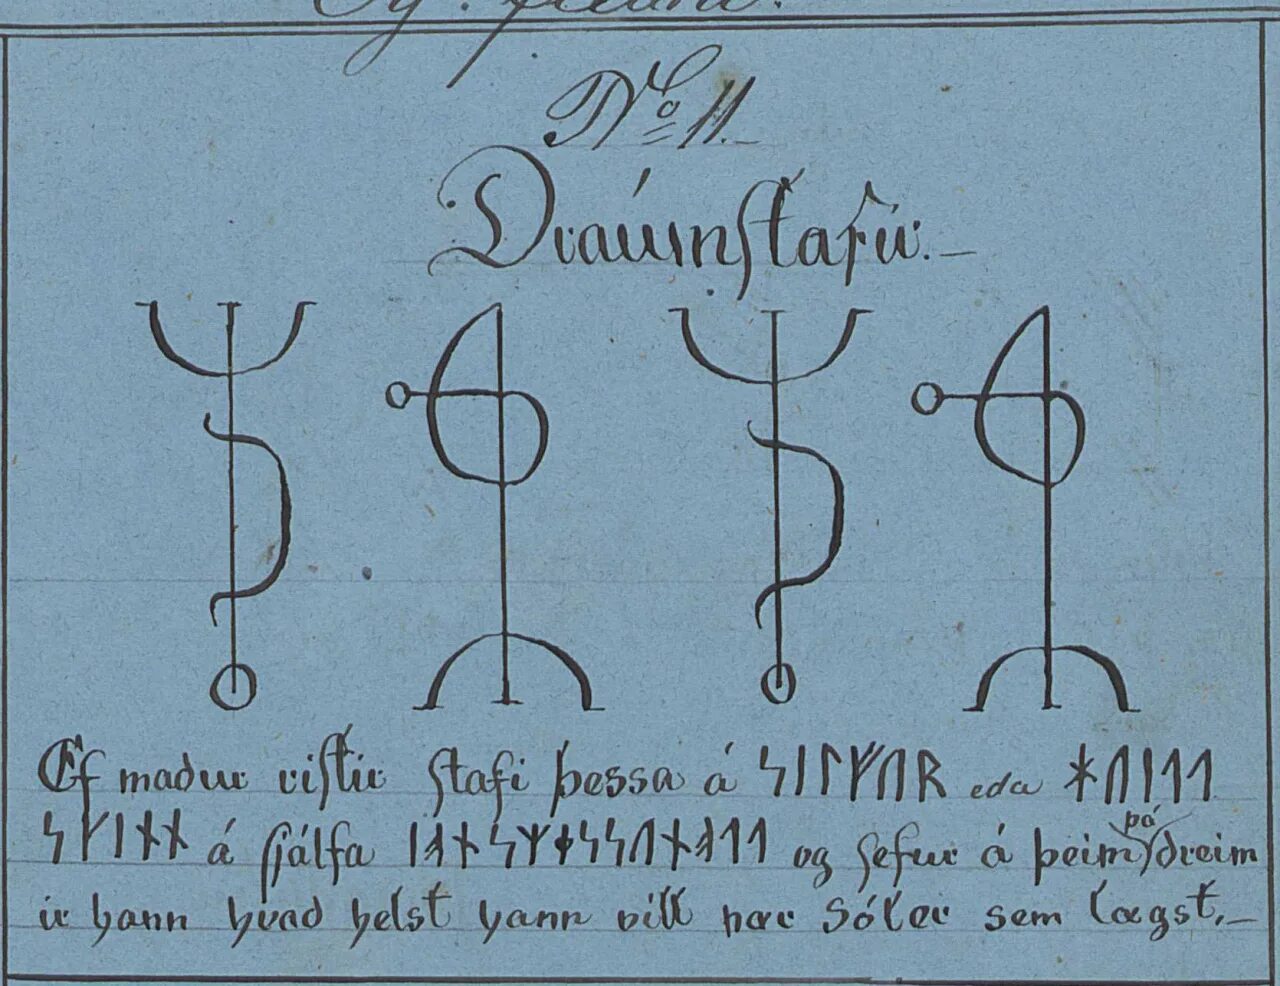 No 11.
Draúmstafir.
Ef madur ristir stafi þessa á ᛋᛁᛚᚠᚢᚱ eda ᚼᚢᛁᛐᛐ
ᛋᚴᛁᚾᚾ á sjálfa ᛁᚮᚾᛋᛘᛂᛋᛋᚢᚾᚮᛐᛐ og sefur á þeim þá dreim
ir hann hvad helst hann vill nær Sóler sem lægst.